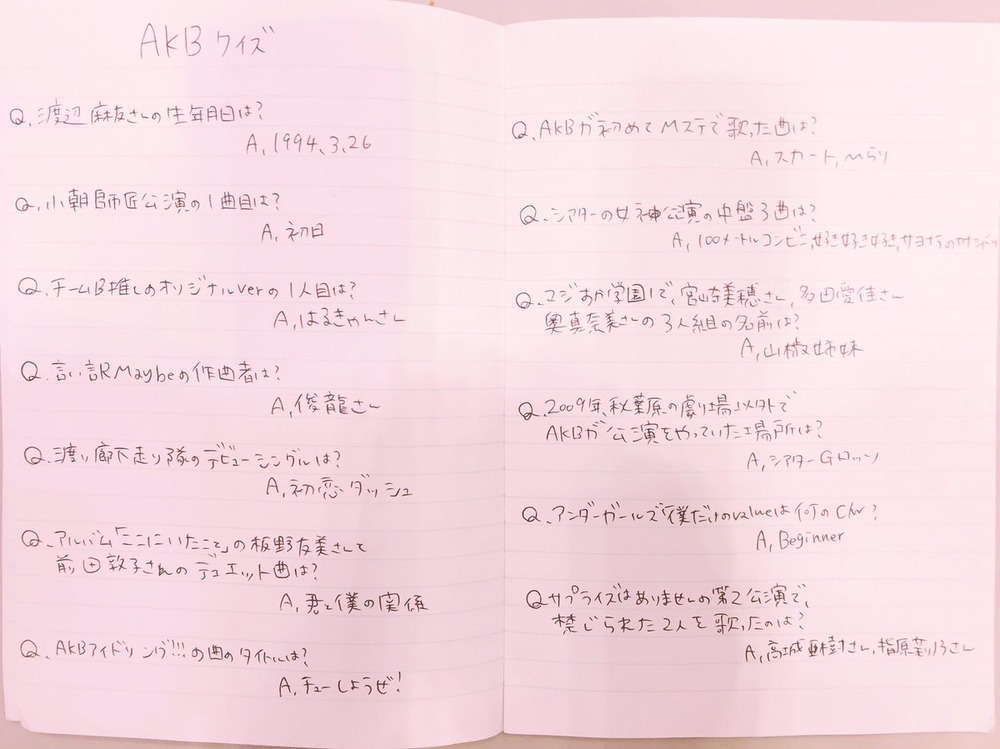 AKBクイズ
Q.渡辺麻友さんの生年月日は?
A,1994、3,26
Q.小朝師匠公演の1曲目は?
A,初日
Q.チームB推しのオリジナルverの1人目は?
A,はるきゃんさん
Q.言い訳Maybeの作曲者は?
A,俊龍さん
Q.渡り廊下走り隊のデビューシングルは?
A,初恋ダッシュ
Q.アルバム「ここにいたこと」の板野友美さんと
前田敦子さんのデュエット曲は?
A,君と僕の関係
Q.AKBアイドリング!!!の曲のタイトルは?
A,チューしようぜ!
Q.AKBが初めてMステで歌った曲は?
A,スカート,ひらり
Q.シアターの女神公演の中盤3曲は?
A,100メートルコンビニ,好き好き好き,サヨナラのカナシバリ
Q.マジすか学園1で、宮崎美穂さん,多田愛佳さん
奥真奈美さんの3人組の名前は?
A,山椒姉妹
Q.2009年、秋葉原の劇場以外で
AKBが公演をやっていた場所は?
A,シアターGロッソ
Q.アンダーガールズ「僕だけのvalueは何のC/W?
A,Beginner
Qサプライズはありませんの第2公演で、
禁じられた2人を歌ったのは?
A,高城亜樹さん,指原莉乃さん